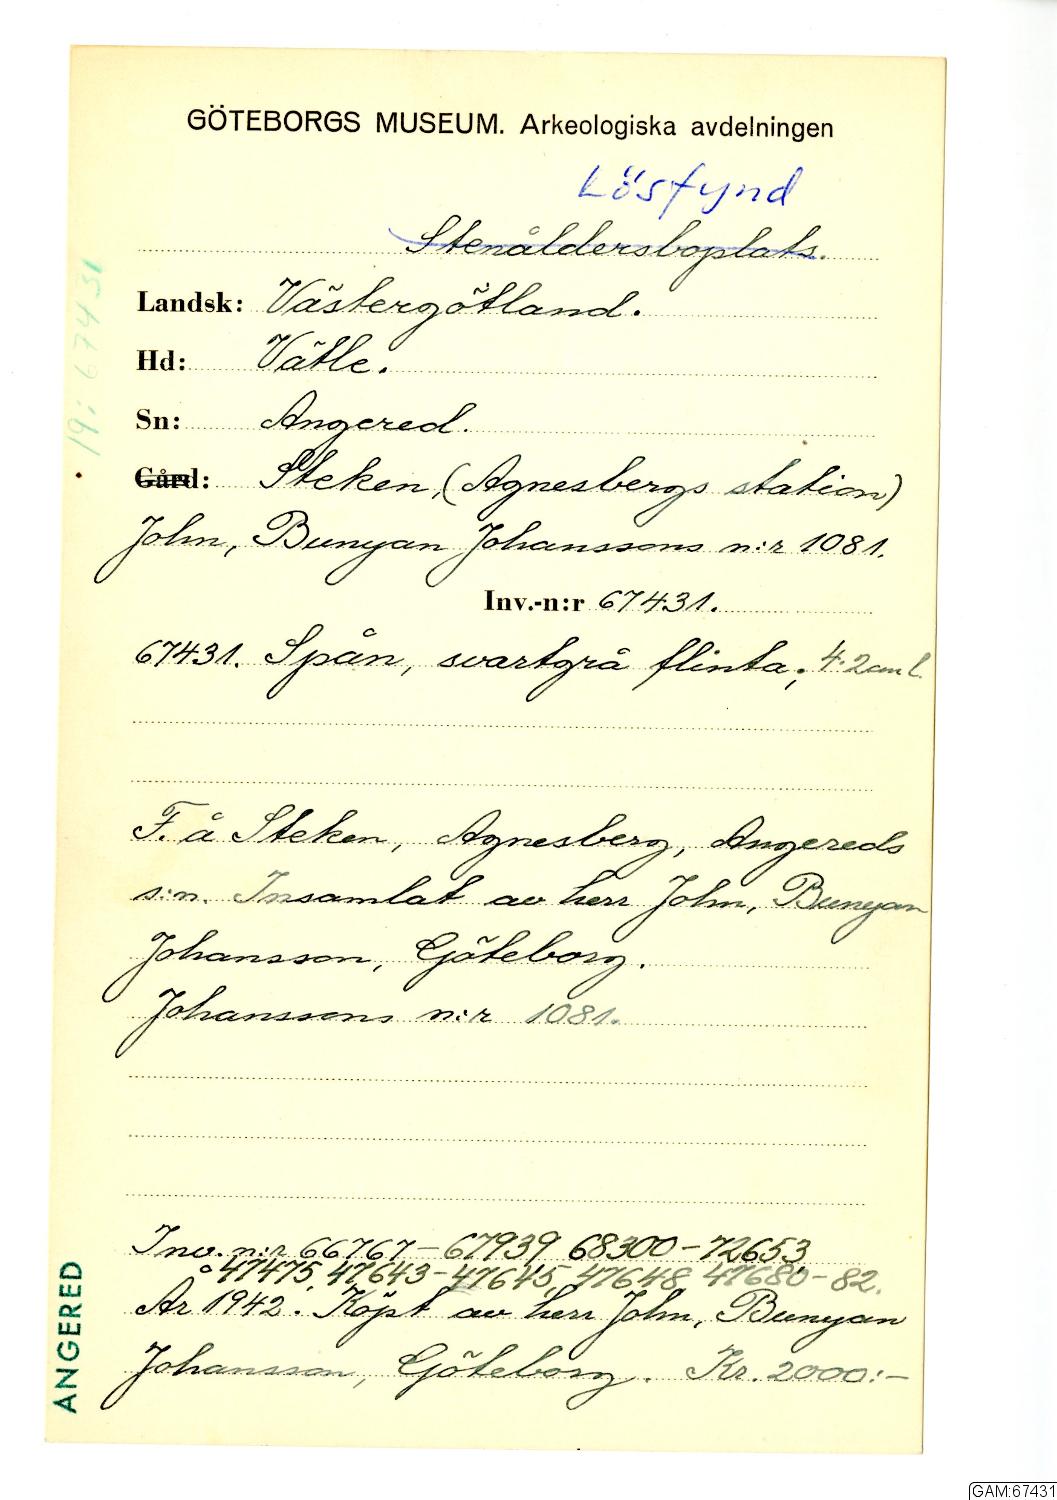 GÖTEBORGS MUSEUM. Arkeologiska avdelningen
Lösfynd
Stenåldersboplats.
Landsk: Västergötland.
Hd: Vätle.
Sn: Angered.
Gård: Steken, (Agnesbergs station)
John, Bunyan Johanssons n:r 1081.
Inv.-n:r 67431.
67431. Spån, svartgrå flinta; 4.2 cm l.
F. å Steken, Agnesberg, Angereds
s:n. Insamlat av herr John, Bunyan
Johansson, Göteborg.
Johanssons n:r 1081.
Inv. n:r 66767–67939 68300–72653
47475, 47643–47645, 47648, 47680–82.
År 1942. Köpt av herr John, Bunyan
Johansson, Göteborg. Kr. 2000:–
19: 67431
ANGERED
GAM:67431